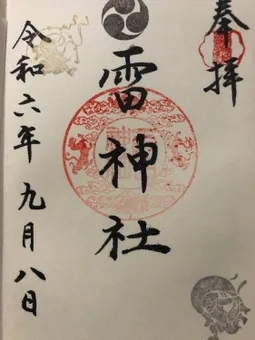 奉拝
雷神社
令和六年九月八日